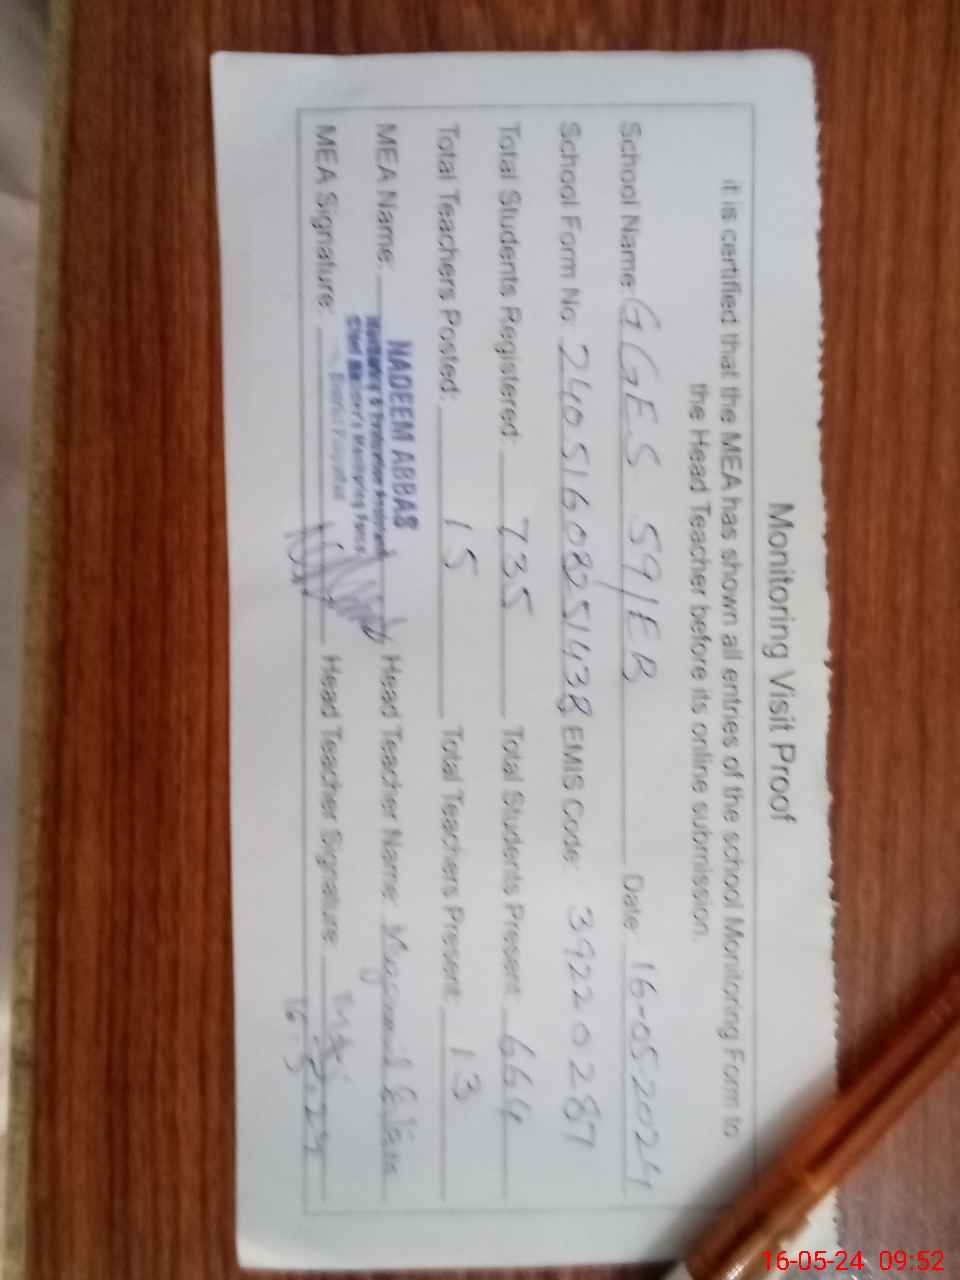 Monitoring Visit Proof
it is certified that the MEA has shown all entries of the school Monitoring Form to
the Head Teacher before its online submission.
School Name: GGES 59/EB Date: 16-05-2024
School Form No: 24051608251438 EMIS Code: 39220287
Total Students Registered: 735 Total Students Present: 664
Total Teachers Posted: 15 Total Teachers Present: 13
MEA Name: NADEEM ABBAS Head Teacher Name:
Monitoring & Evaluation Assistant
Chief Minister's Monitoring Force
District Pakpattan
MEA Signature: Head Teacher Signature:
16-05-24 09:52